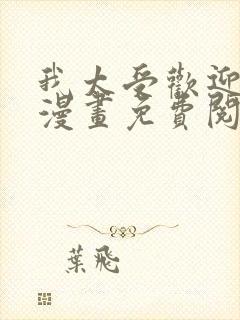 我大受歡迎
漫畫免費閱
葉飛